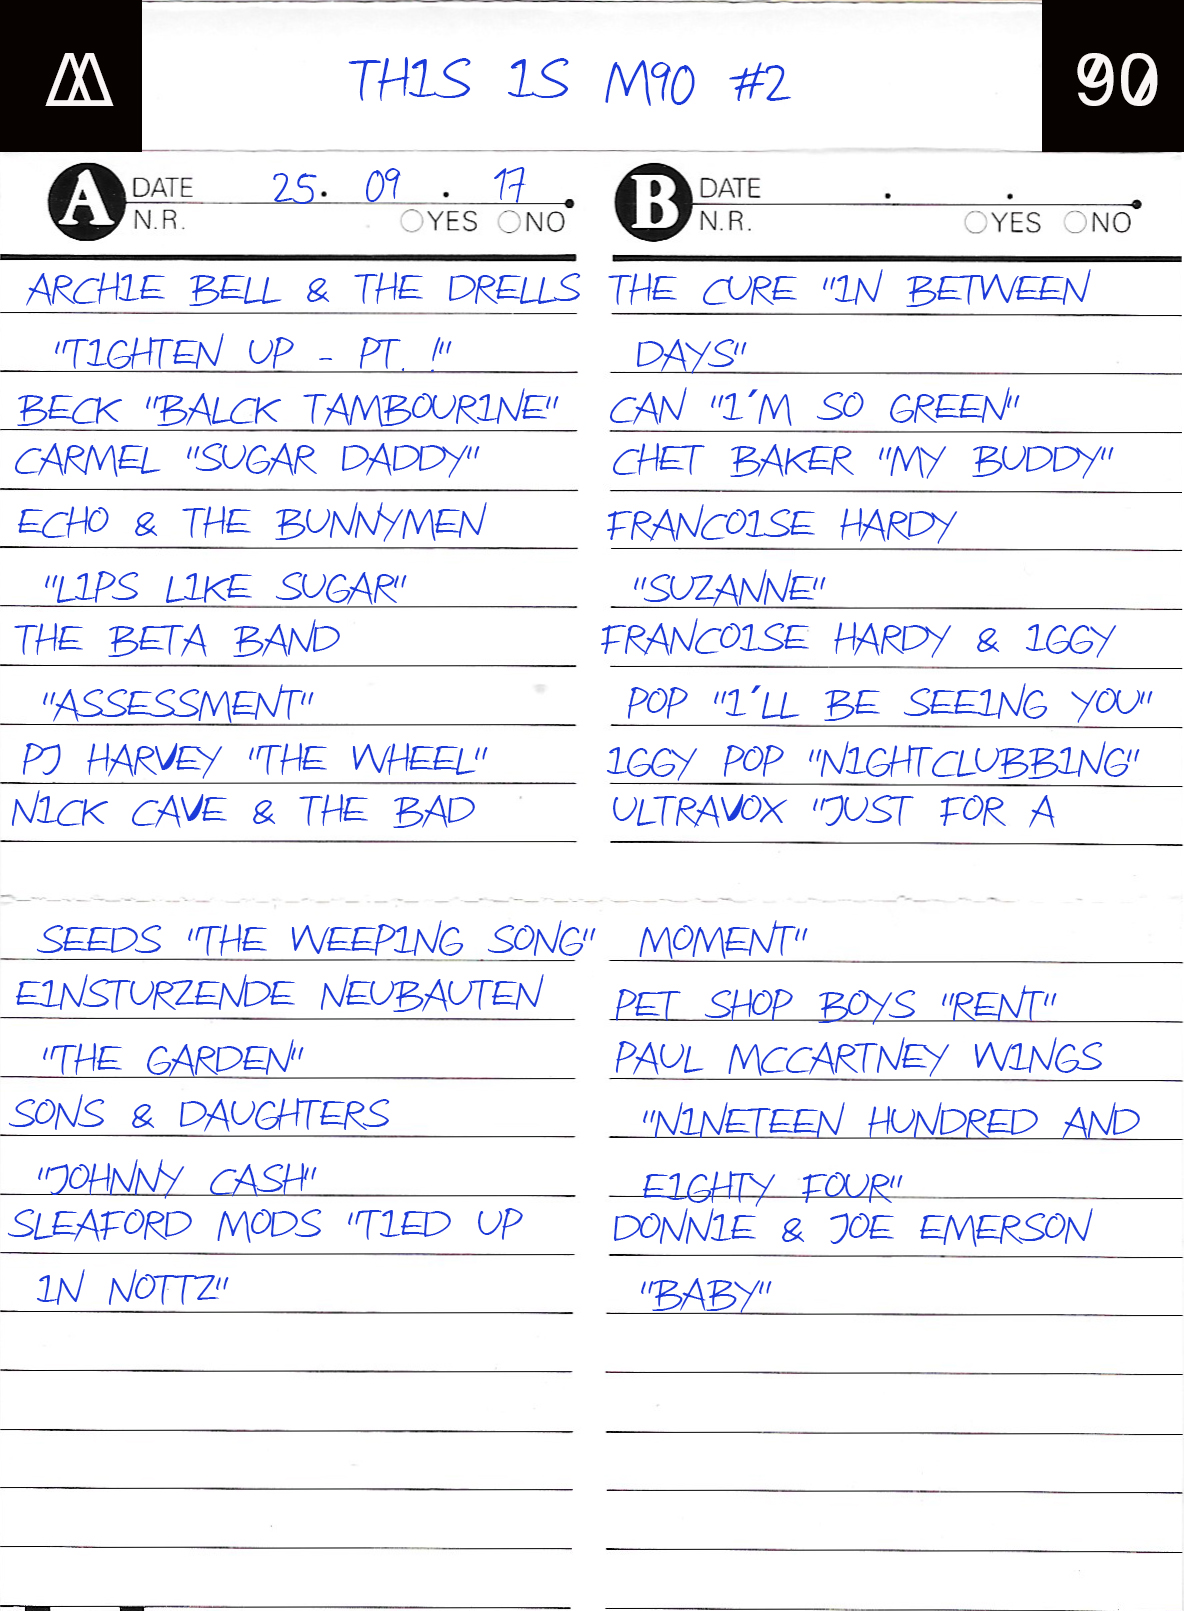 M
TH1S 1S M90 #2
90
A DATE 25. 09 . 17
N.R. YES NO
ARCH1E BELL & THE DRELLS
"T1GHTEN UP - PT. !"
BECK "BALCK TAMBOUR1NE"
CARMEL "SUGAR DADDY"
ECHO & THE BUNNYMEN
"L1PS L1KE SUGAR"
THE BETA BAND
"ASSESSMENT"
PJ HARVEY "THE WHEEL"
N1CK CAVE & THE BAD
SEEDS "THE WEEP1NG SONG"
E1NSTURZENDE NEUBAUTEN
"THE GARDEN"
SONS & DAUGHTERS
"JOHNNY CASH"
SLEAFORD MODS "T1ED UP
1N NOTTZ"
B DATE . .
N.R. YES NO
THE CURE "1N BETWEEN
DAYS"
CAN "1´M SO GREEN"
CHET BAKER "MY BUDDY"
FRANCO1SE HARDY
"SUZANNE"
FRANCO1SE HARDY & 1GGY
POP "1´LL BE SEE1NG YOU"
1GGY POP "N1GHTCLUBB1NG"
ULTRAVOX "JUST FOR A
MOMENT"
PET SHOP BOYS "RENT"
PAUL MCCARTNEY W1NGS
"N1NETEEN HUNDRED AND
E1GHTY FOUR"
DONN1E & JOE EMERSON
"BABY"